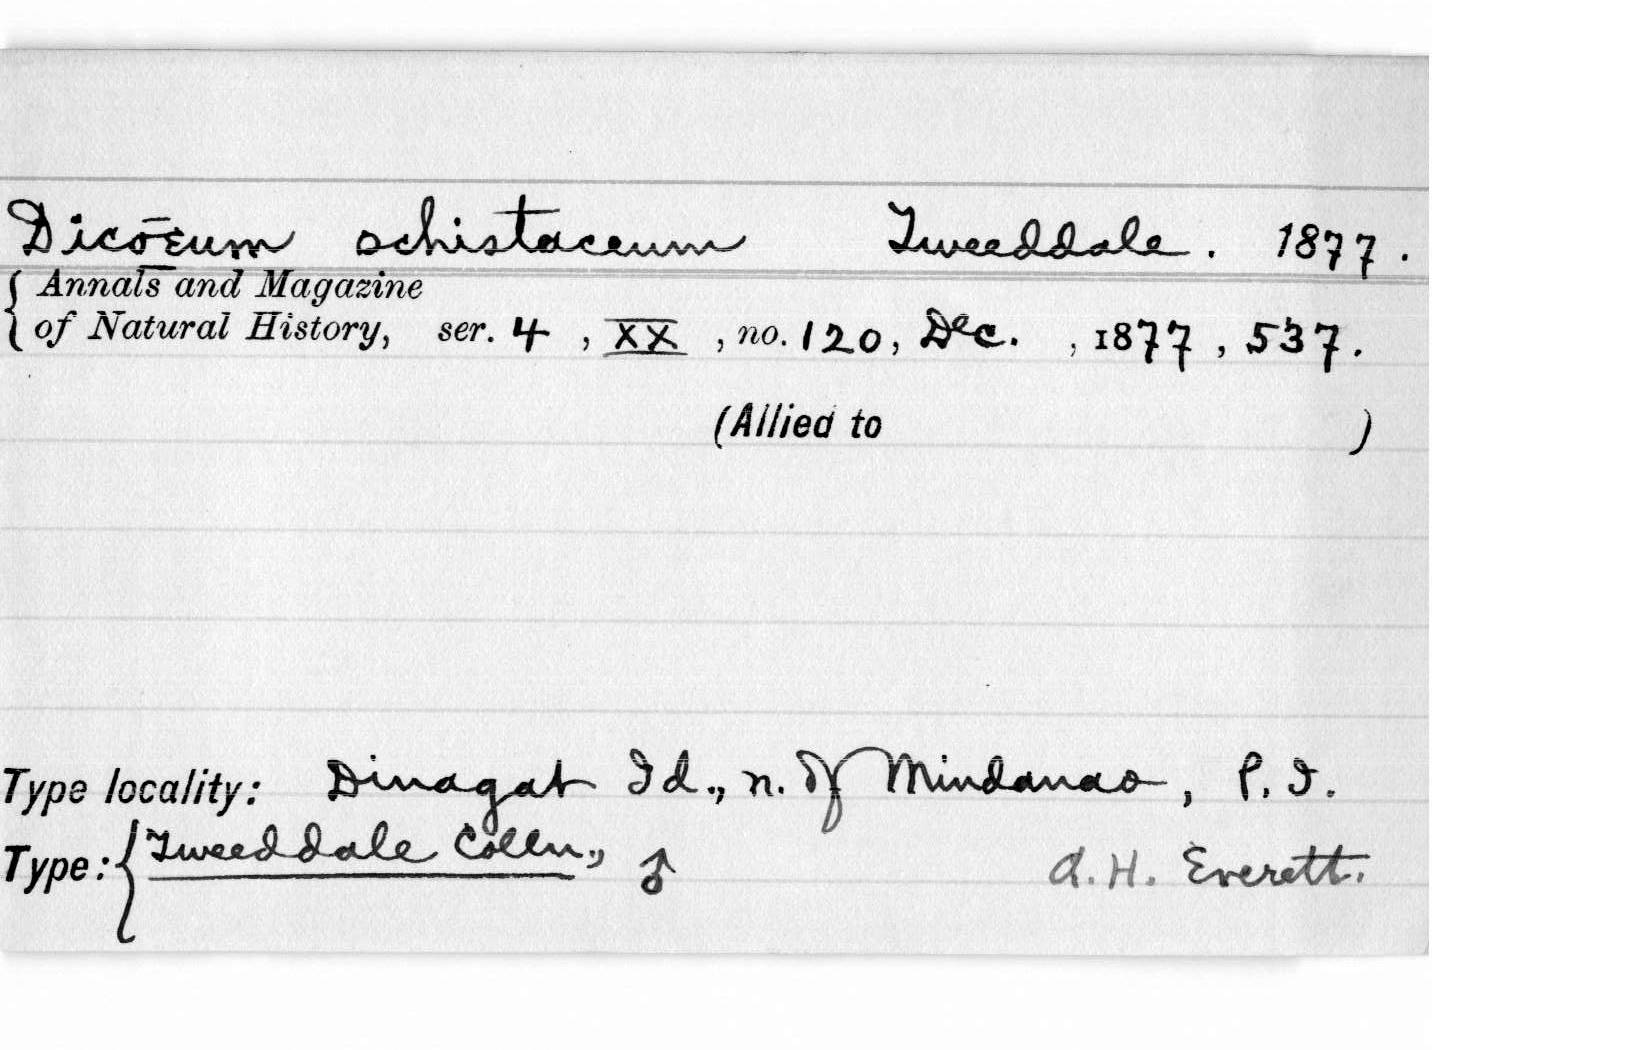 Dicæum schistaceum Tweeddale. 1877.
{ Annals and Magazine
of Natural History, ser. 4, XX, no. 120, Dec. , 1877, 537.
(Allied to )
Type locality: Dinagat Id., n. of Mindanao, P. I.
Type: { Tweeddale Colln., ♂ A. H. Everett.